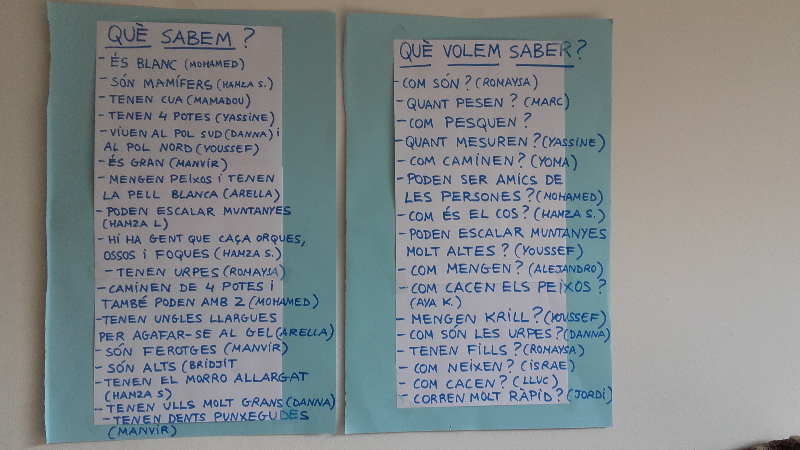 QUÈ SABEM?
- ÉS BLANC (MOHAMED)
- SÓN MAMÍFERS (HAMZA S.)
- TENEN CUA (MAMADOU)
- TENEN 4 POTES (YASSINE)
- VIUEN AL POL SUD (DANNA) i
AL POL NORD (YOUSSEF)
- ÉS GRAN (MANVIR)
- MENGEN PEIXOS i TENEN
LA PELL BLANCA (ARELLA)
- PODEN ESCALAR MUNTANYES
(HAMZA L)
- HI HA GENT QUE CAÇA ORQUES,
OSSOS i FOQUES (HAMZA S.)
- TENEN URPES (ROMAYSA)
- CAMINEN DE 4 POTES i
TAMBÉ PODEN AMB 2 (MOHAMED)
- TENEN UNGLES LLARGUES
PER AGAFAR-SE AL GEL (ARELLA)
- SÓN FEROTGES (MANVIR)
- SÓN ALTS (BRIDJIT
- TENEN EL MORRO ALLARGAT
(HAMZA S)
- TENEN ULLS MOLT GRANS (DANNA)
- TENEN DENTS PUNXEGUDES
(MANVIR)
QUÈ VOLEM SABER?
- COM SÓN? (ROMAYSA)
- QUANT PESEN? (MARC)
- COM PESQUEN?
- QUANT MESUREN? (YASSINE)
- COM CAMINEN? (YOMA)
- PODEN SER AMICS DE
LES PERSONES? (MOHAMED)
- COM ÉS EL COS? (HAMZA S.)
- PODEN ESCALAR MUNTANYES
MOLT ALTES? (YOUSSEF)
- COM MENGEN? (ALEJANDRO)
- COM CACEN ELS PEIXOS?
(AYA K.)
- MENGEN KRILL? (YOUSSEF)
- COM SÓN LES URPES? (DANNA)
- TENEN FILLS? (ROMAYSA)
- COM NEIXEN? (ISRAE)
- COM CACEN? (LLUC)
- CORREN MOLT RÀPID? (JORDI)